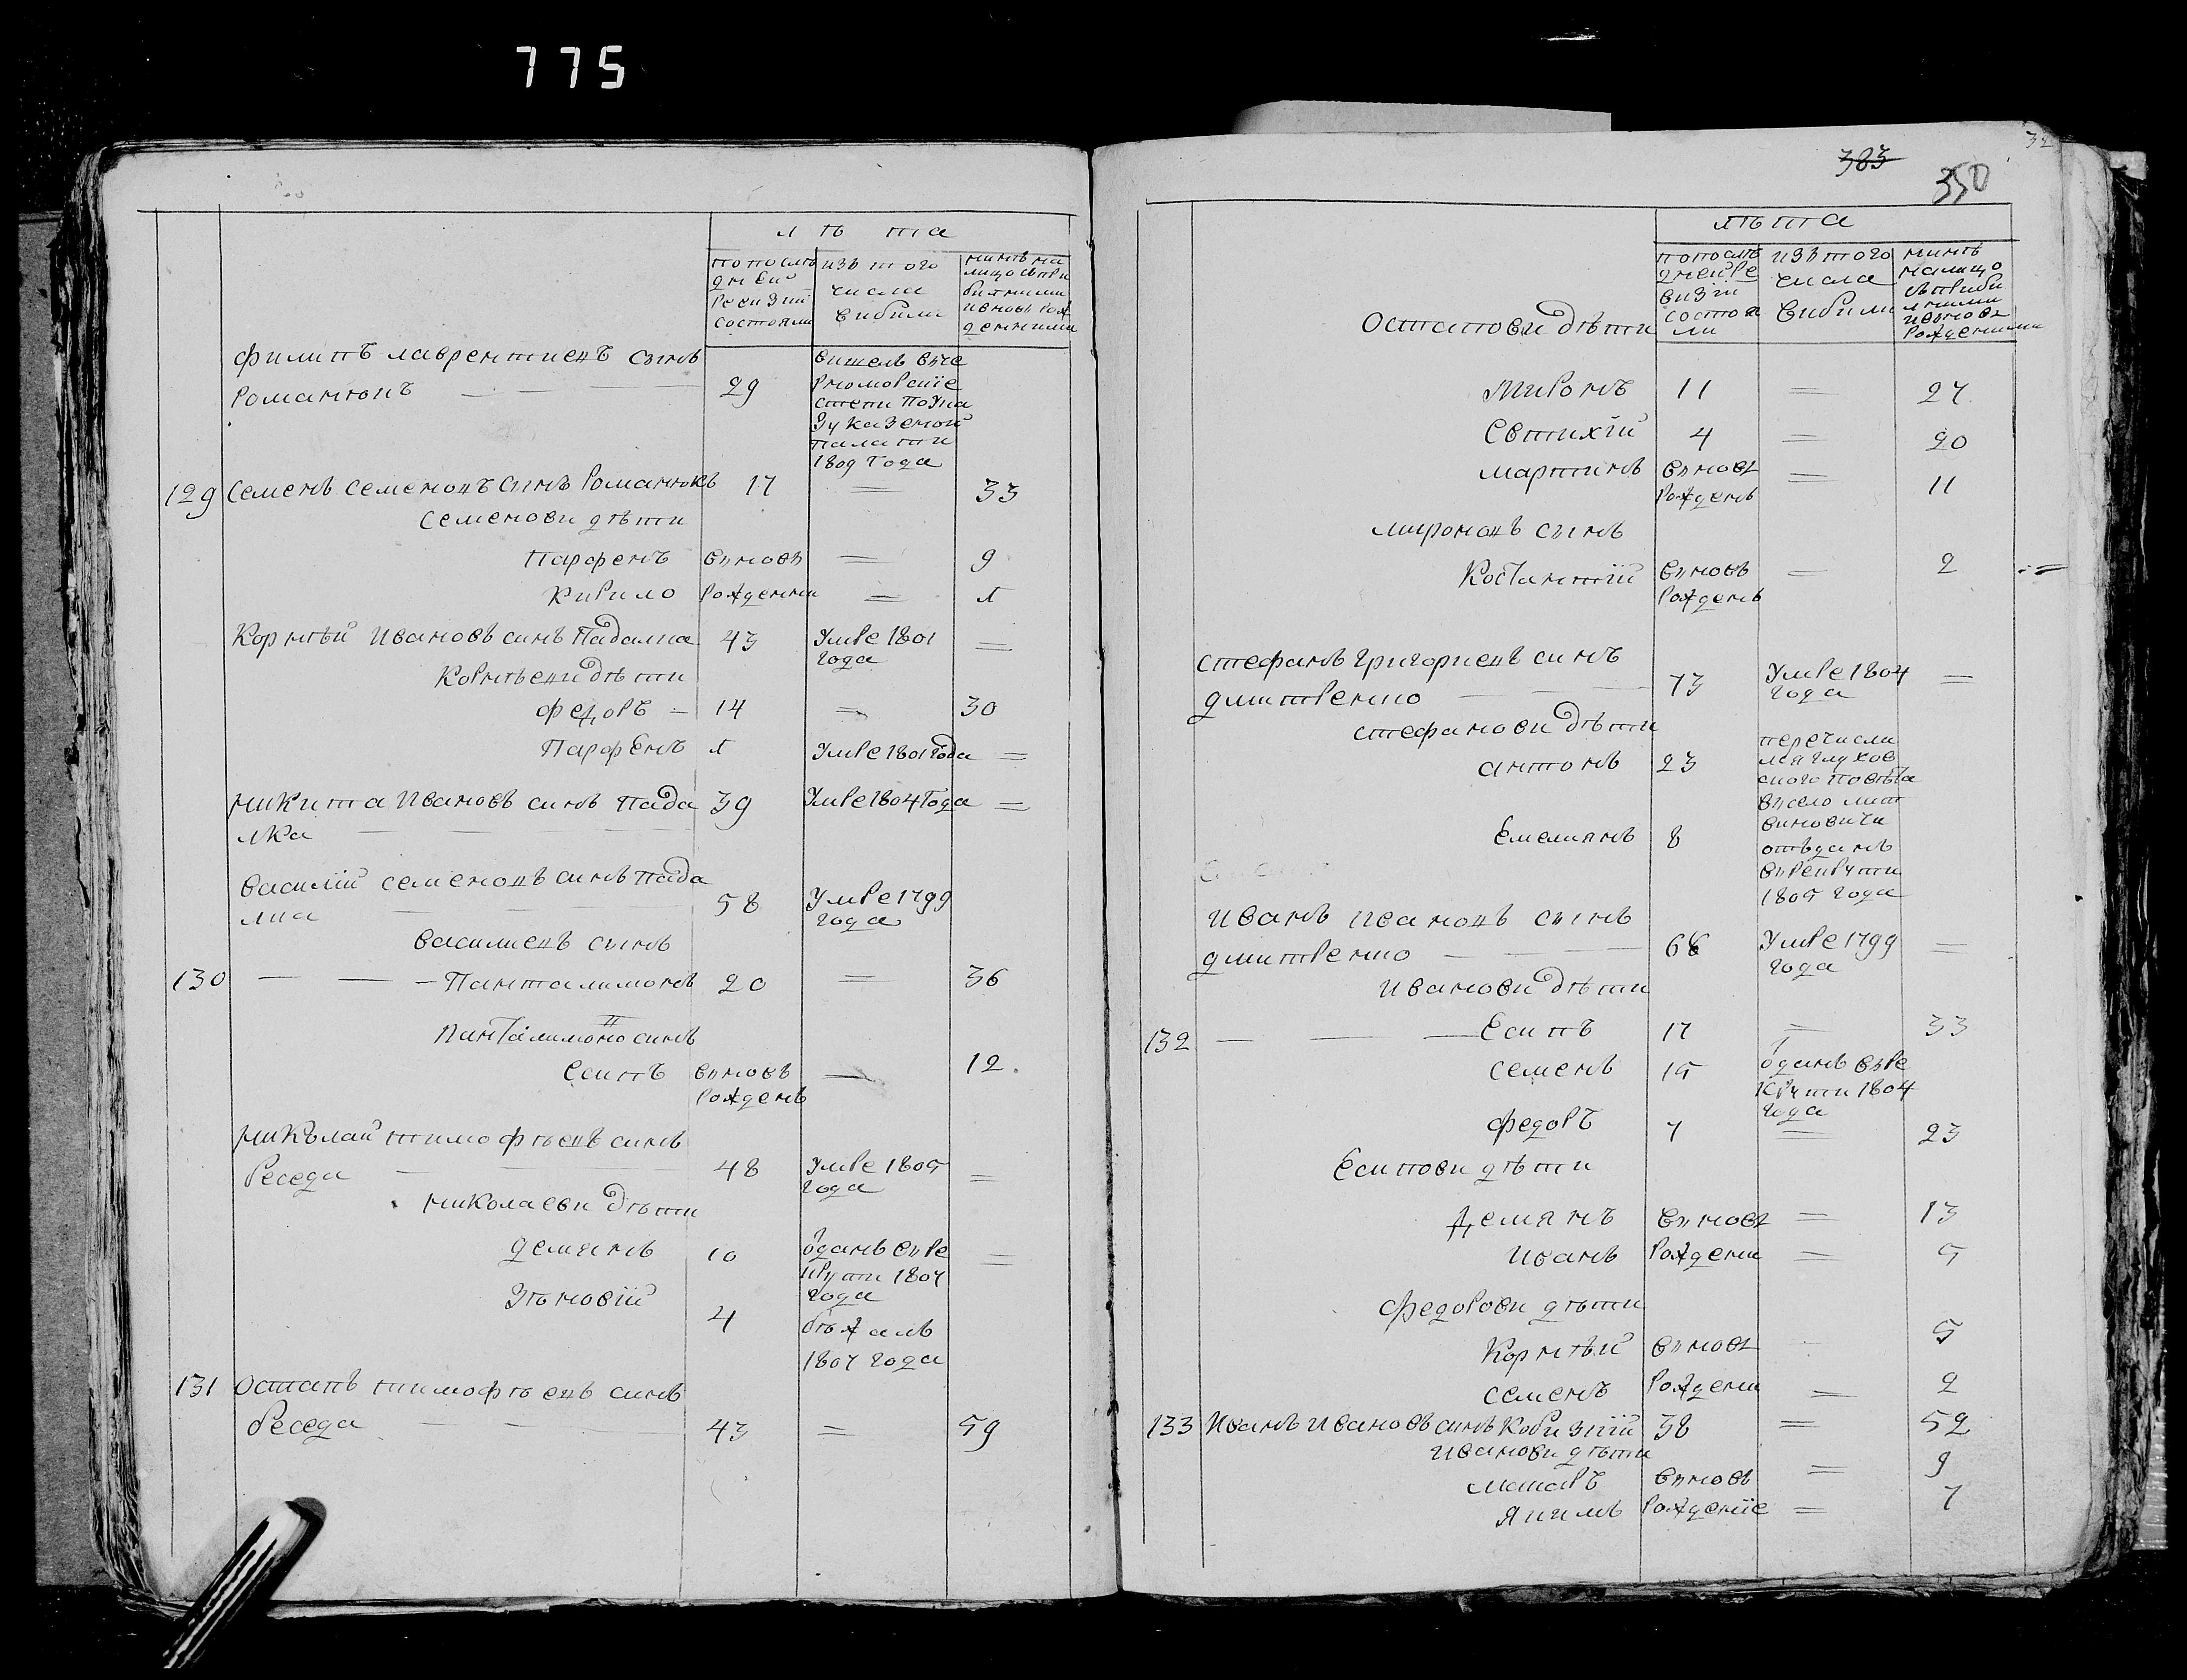 775
лѣта
по послѣдней ревизіи состояли
изъ того числа выбили
нинѣ на лицо съ прибилими и вновь рожденними
филипъ лаврентиевъ синъ
романюкъ 29
1809 года
129 Семенъ семеновъ синъ романюкъ 17 33
семенови дѣти
Парфенъ вновь 9
Кирило рожденни
Корнѣй Ивановъ синъ Падалка 43 Умре 1801 года
Корнѣеви дѣти
федоръ 14 30
Парфенъ Умре 1801 года
Никита Ивановъ синъ пада 39 Умре 1804 года
лка
Василій семеновъ синъ пада
лка 58 Умре 1799 года
василиевъ синъ
130 Панталимонъ 20 36
панталимоно синъ
есипъ вновь рожденъ 12.
Николай тимофѣевъ синъ
беседа 48 Умре 1805 года
николаеви дѣти
демянъ 10 оданъ врекрути 1807 года
Зѣновій 4 бѣжалъ 1807 года
131 остапъ тимофѣевъ синъ
беседа 43 59
383
350
лѣта
по послѣдней ревизіи состояли
изъ того числа вибили
нинѣ на лицо съ прибилими и вновь рожденними
остапови дѣти
Миронъ 11 27
Евтихій 4 20
мартинъ вновь рожденъ 11
мироновъ синъ
Костантій вновь рожденъ 2
стефанъ григориевъ синъ
дмитренко 73 Умре 1804 года
стефанови дѣти
антонъ 23 перечисли
лся глухов
ского повѣта
в село лит
виновичи
Емелиянъ 8 отъданъ
врекрути
1805 года
Иванъ Ивановъ синъ
дмитренко 68 Умре 1799 года
ивановидѣти
132 Есипъ 17 33
семенъ 15 оданъ вре
крути 1804
года
федоръ 7 23
Есипови дѣти
Демянъ вновь 13
Иванъ рожденни 5
федорови дѣти
Корнѣй вновь 5
семенъ рожденни 2
133 Иванъ Ивановъ синъ Кобизкій 38 52
ивановидѣти
макаръ вновь 9
якимъ рожденіе 7